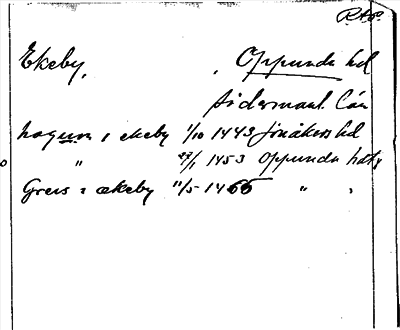 R.A.P.
Ekeby, Oppunda hd
Södermanl. Län
haquon i ekeby 1/10 1443 Jönåkers hd
o " 27/1 1453 Oppunda
Greus i ækeby 11/5 1466 "